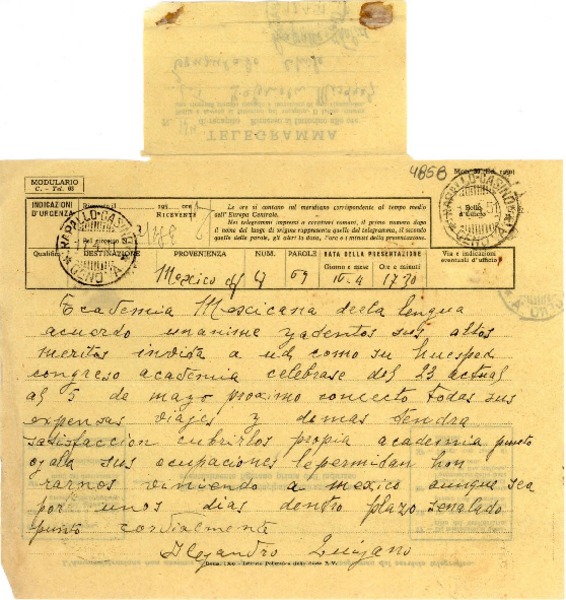 TELEGRAMMA
4858
MODULARIO
C. - Tel. 68
INDICAZIONI D'URGENZA
RICEVENTE
Le ore si contano sul meridiano corrispondente al tempo medio
dell'Europa Centrale.
Nei telegrammi impressi a caratteri romani, il primo numero dopo
il nome del luogo di origine rappresenta quello del telegramma, il secondo
quello delle parole, gli altri la data, l'ora e i minuti della presentazione.
RAPALLO-CASINO
GENOVA
Bollo
RAPALLO-CASINO
GENOVA
Qualifica DESTINAZIONE PROVENIENZA NUM. PAROLE DATA DELLA PRESENTAZIONE Via e indicazioni
Giorno e mese Ore e minuti eventuali d'ufficio
Mexico df 9 69 16-4 1730
Ecademia Mexicana della lengua
acuerdo unanime yadentos sus altos
meritos invita a ud como su huesped
congreso academia celebrase del 23 actual
al 5 de mayo proximo concecto todas sus
expensas viajes y demas tendra
satisfaccion cubrirlos propia academia punto
ojalla sus ocupaciones lepermitan hon
rarnos viniendo a mexico aunque sea
por unos dias dentro plazo senalado
punto cordialmente
Alejandro Quijano